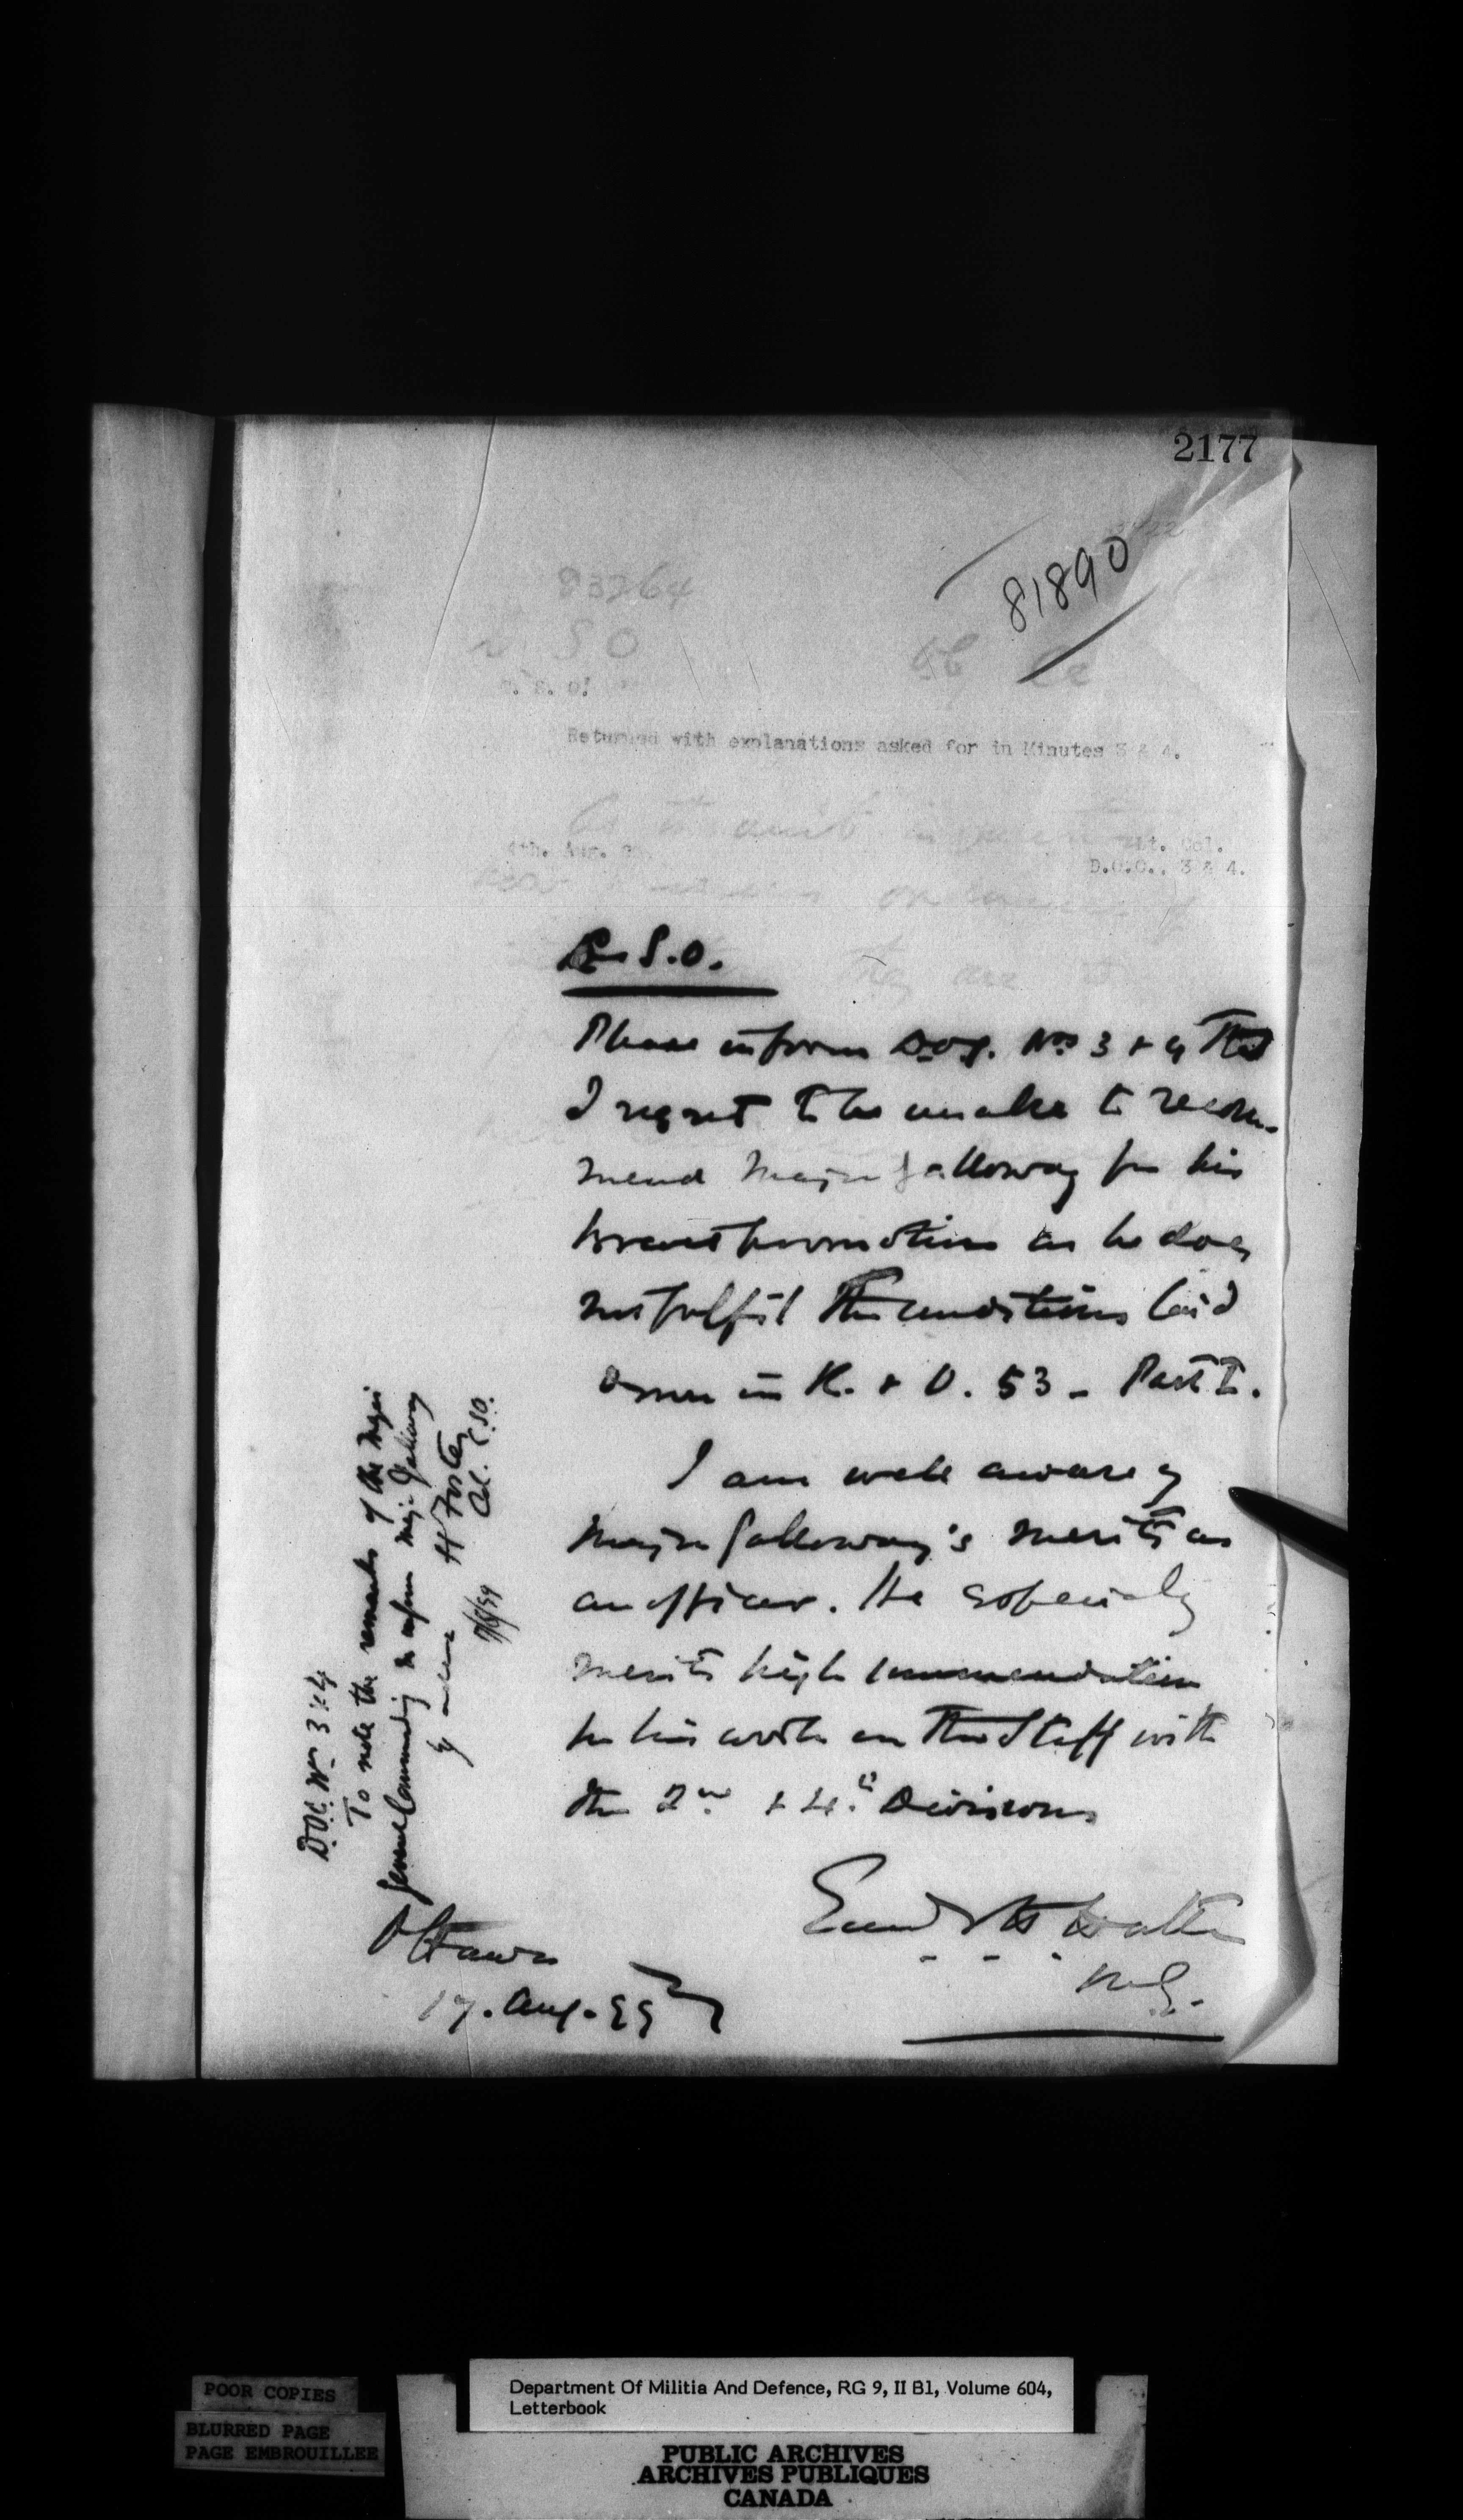 2177
81890
83264
S O
S. O.
Returned with explanations asked for in Minutes 3 & 4.
4th. Aug.
Lt. Col.
D.O.C.. 3 & 4.
C. S. O.
Please inform D.O.C. Nos 3 & 4 that
I regret to be unable to recom-
mend Major Galloway for his
brevet promotion as he does
not fulfil the conditions laid
down in R. & O. 53 - Part I.
I am well aware of
Major Galloway's merits as
an officer. He especially
merits high commendation
for his work on the Staff with
the 2nd & 4th Divisions
M.G.
Ottawa
17. Aug. 99
D.O.C. No 3 & 4
To note the remarks of the Major
General Commanding & inform Maj. Galloway
H Foster
Col. C.SO.
POOR COPIES
BLURRED PAGE
PAGE EMBROUILLEE
Department Of Militia And Defence, RG 9, II B1, Volume 604,
Letterbook
PUBLIC ARCHIVES
ARCHIVES PUBLIQUES
CANADA